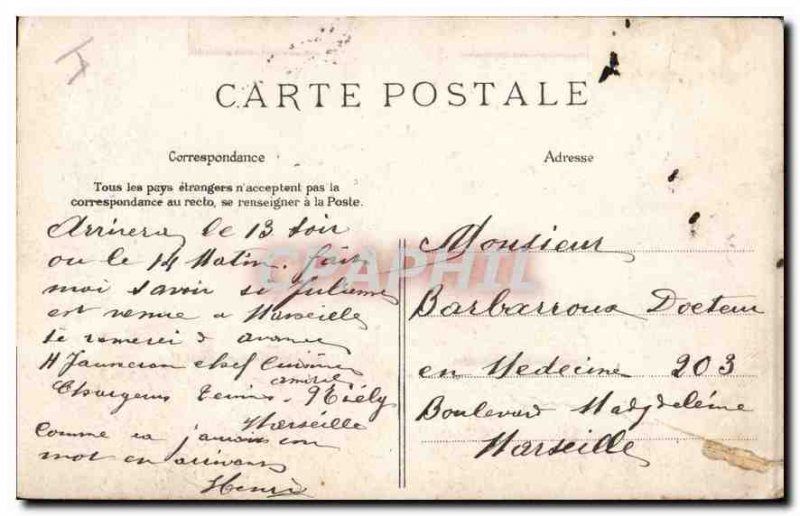 CARTE POSTALE
Correspondance
Adresse
Tous les pays étrangers n'acceptent pas la
correspondance au recto, se renseigner à la Poste.
Arrivera le 13 soir
ou le 14 Matin. fait
moi savoir si Julienne
est venue a Marseille
te remerci d avance
H chef Cuisinier
Chargeurs Reunis. Amiral
Marseille
Comme ca j'aurais un
mot en arrivant
Henri
Monsieur
Barbarroux Docteur
en Medecine 203
Boulevard Madgdeleine
Marseille
CPAPHIL